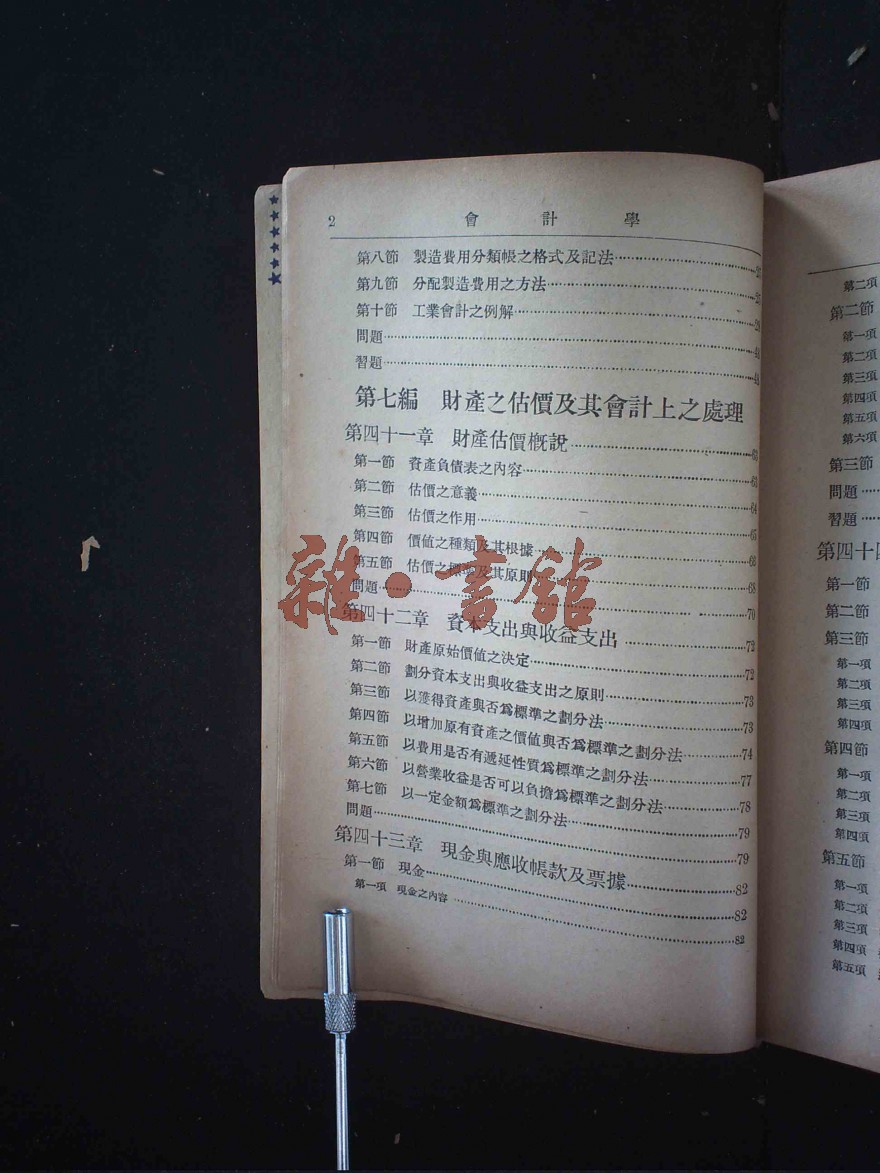 2 會計學
第八節 製造費用分類帳之格式及記法
第九節 分配製造費用之方法
第十節 工業會計之例解
問題
習題
第七編 財產之估價及其會計上之處理
第四十一章 財產估價概說
第一節 資產負債表之內容 63
第二節 估價之意義 64
第三節 估價之作用 65
第四節 價值之種類及其根據 66
第五節 估價之標準及其原則 68
問題 70
第四十二章 資本支出與收益支出 72
第一節 財產原始價值之決定 72
第二節 劃分資本支出與收益支出之原則 73
第三節 以獲得資產與否爲標準之劃分法 73
第四節 以增加原有資產之價值與否爲標準之劃分法 74
第五節 以費用是否有遞延性質爲標準之劃分法 77
第六節 以營業收益是否可以負擔爲標準之劃分法 78
第七節 以一定金額爲標準之劃分法 79
問題 79
第四十三章 現金與應收帳款及票據 82
第一節 現金 82
第一項 現金之內容 82
雜·書館
第二項
第二節
第一項
第二項
第三項
第四項
第五項
第六項
第三節
問題
習題
第四十四
第一節
第二節
第三節
第一項
第二項
第三項
第四項
第四節
第一項
第二項
第三項
第四項
第五節
第一項
第二項
第三項
第四項
第五項